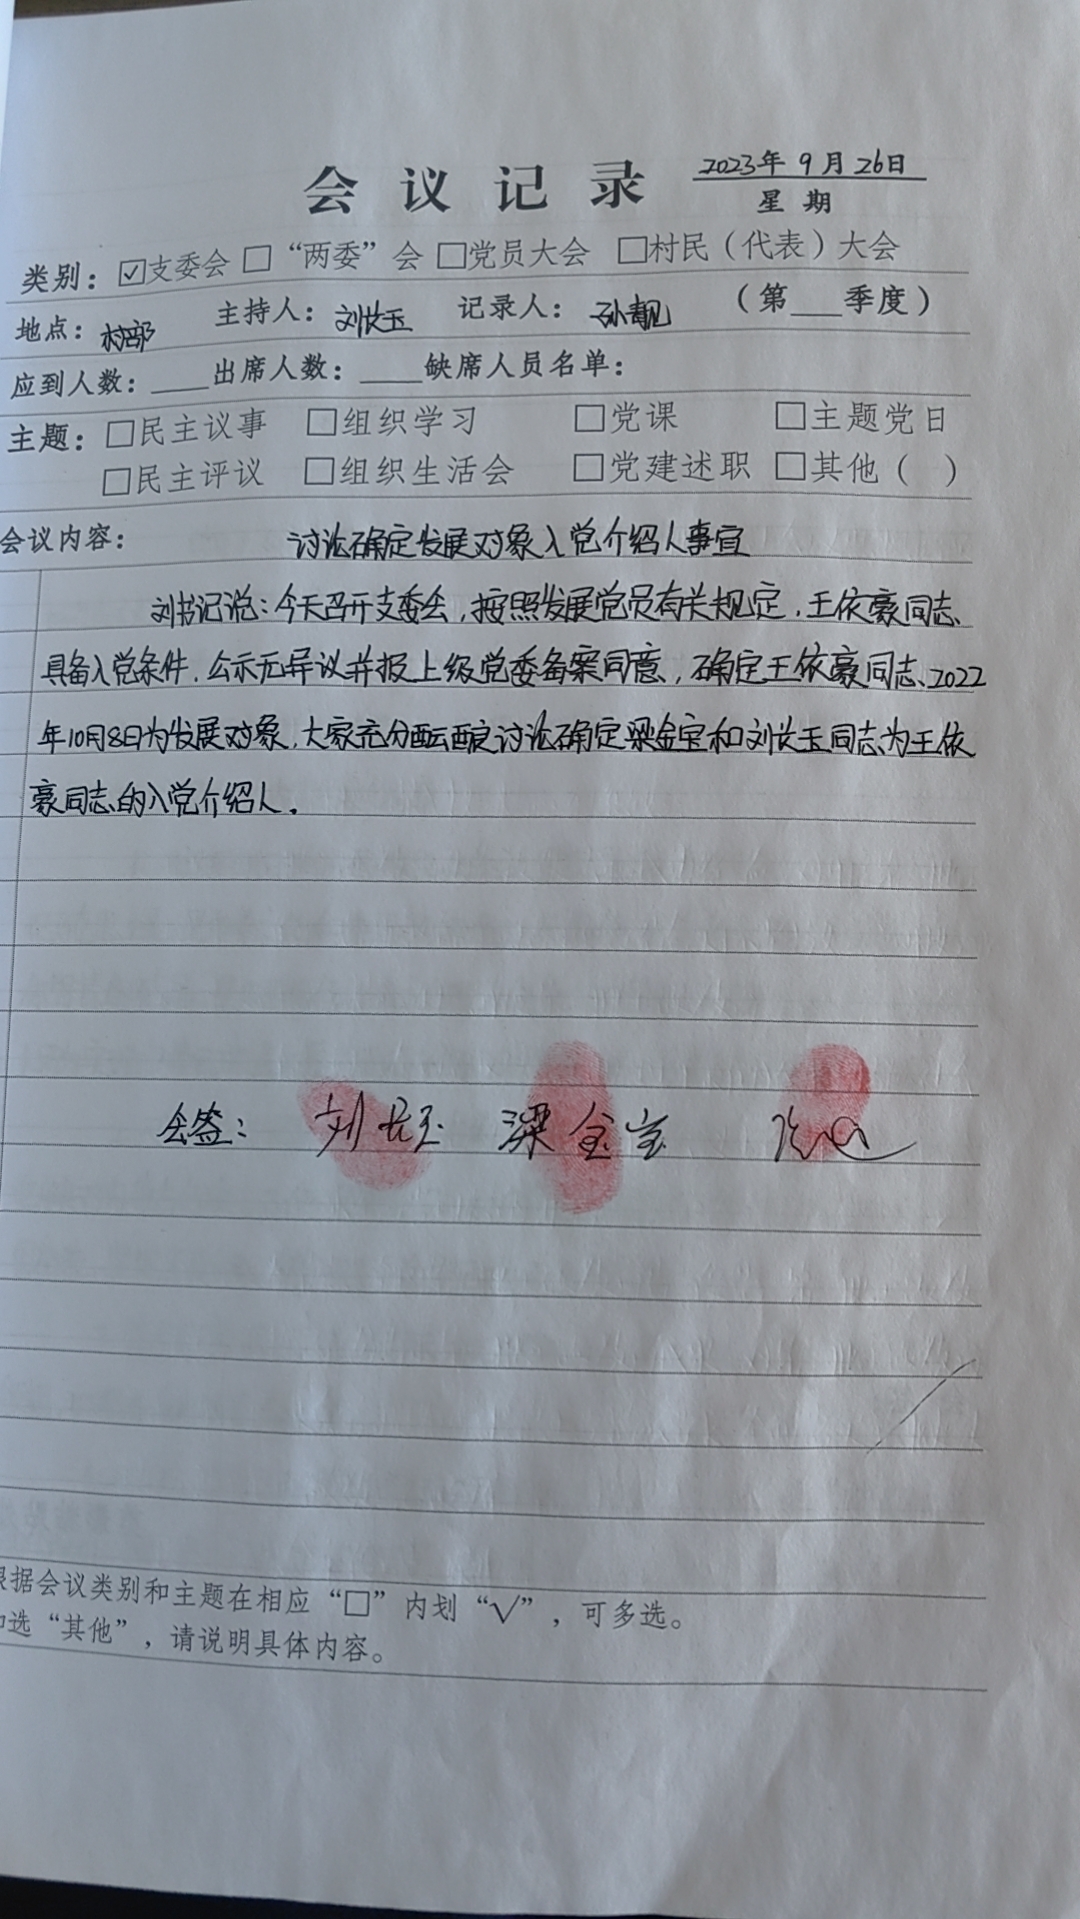 会议记录 2023年9月26日
星期
类别：☑支委会 □“两委”会 □党员大会 □村民（代表）大会
地点：村部 主持人：刘长玉 记录人：孙靓 （第___季度）
应到人数：____出席人数：____缺席人员名单：
主题：□民主议事 □组织学习 □党课 □主题党日
□民主评议 □组织生活会 □党建述职 □其他（ ）
会议内容： 讨论确定发展对象入党介绍人事宜
刘书记说：今天召开支委会，按照发展党员有关规定，王依豪同志
具备入党条件，公示无异议并报上级党委备案同意，确定王依豪同志2022
年10月8日为发展对象，大家充分酝酿讨论确定梁金宝和刘长玉同志为王依
豪同志的入党介绍人。
会签： 刘长玉 梁金宝
根据会议类别和主题在相应“□”内划“√”，可多选。
选“其他”，请说明具体内容。